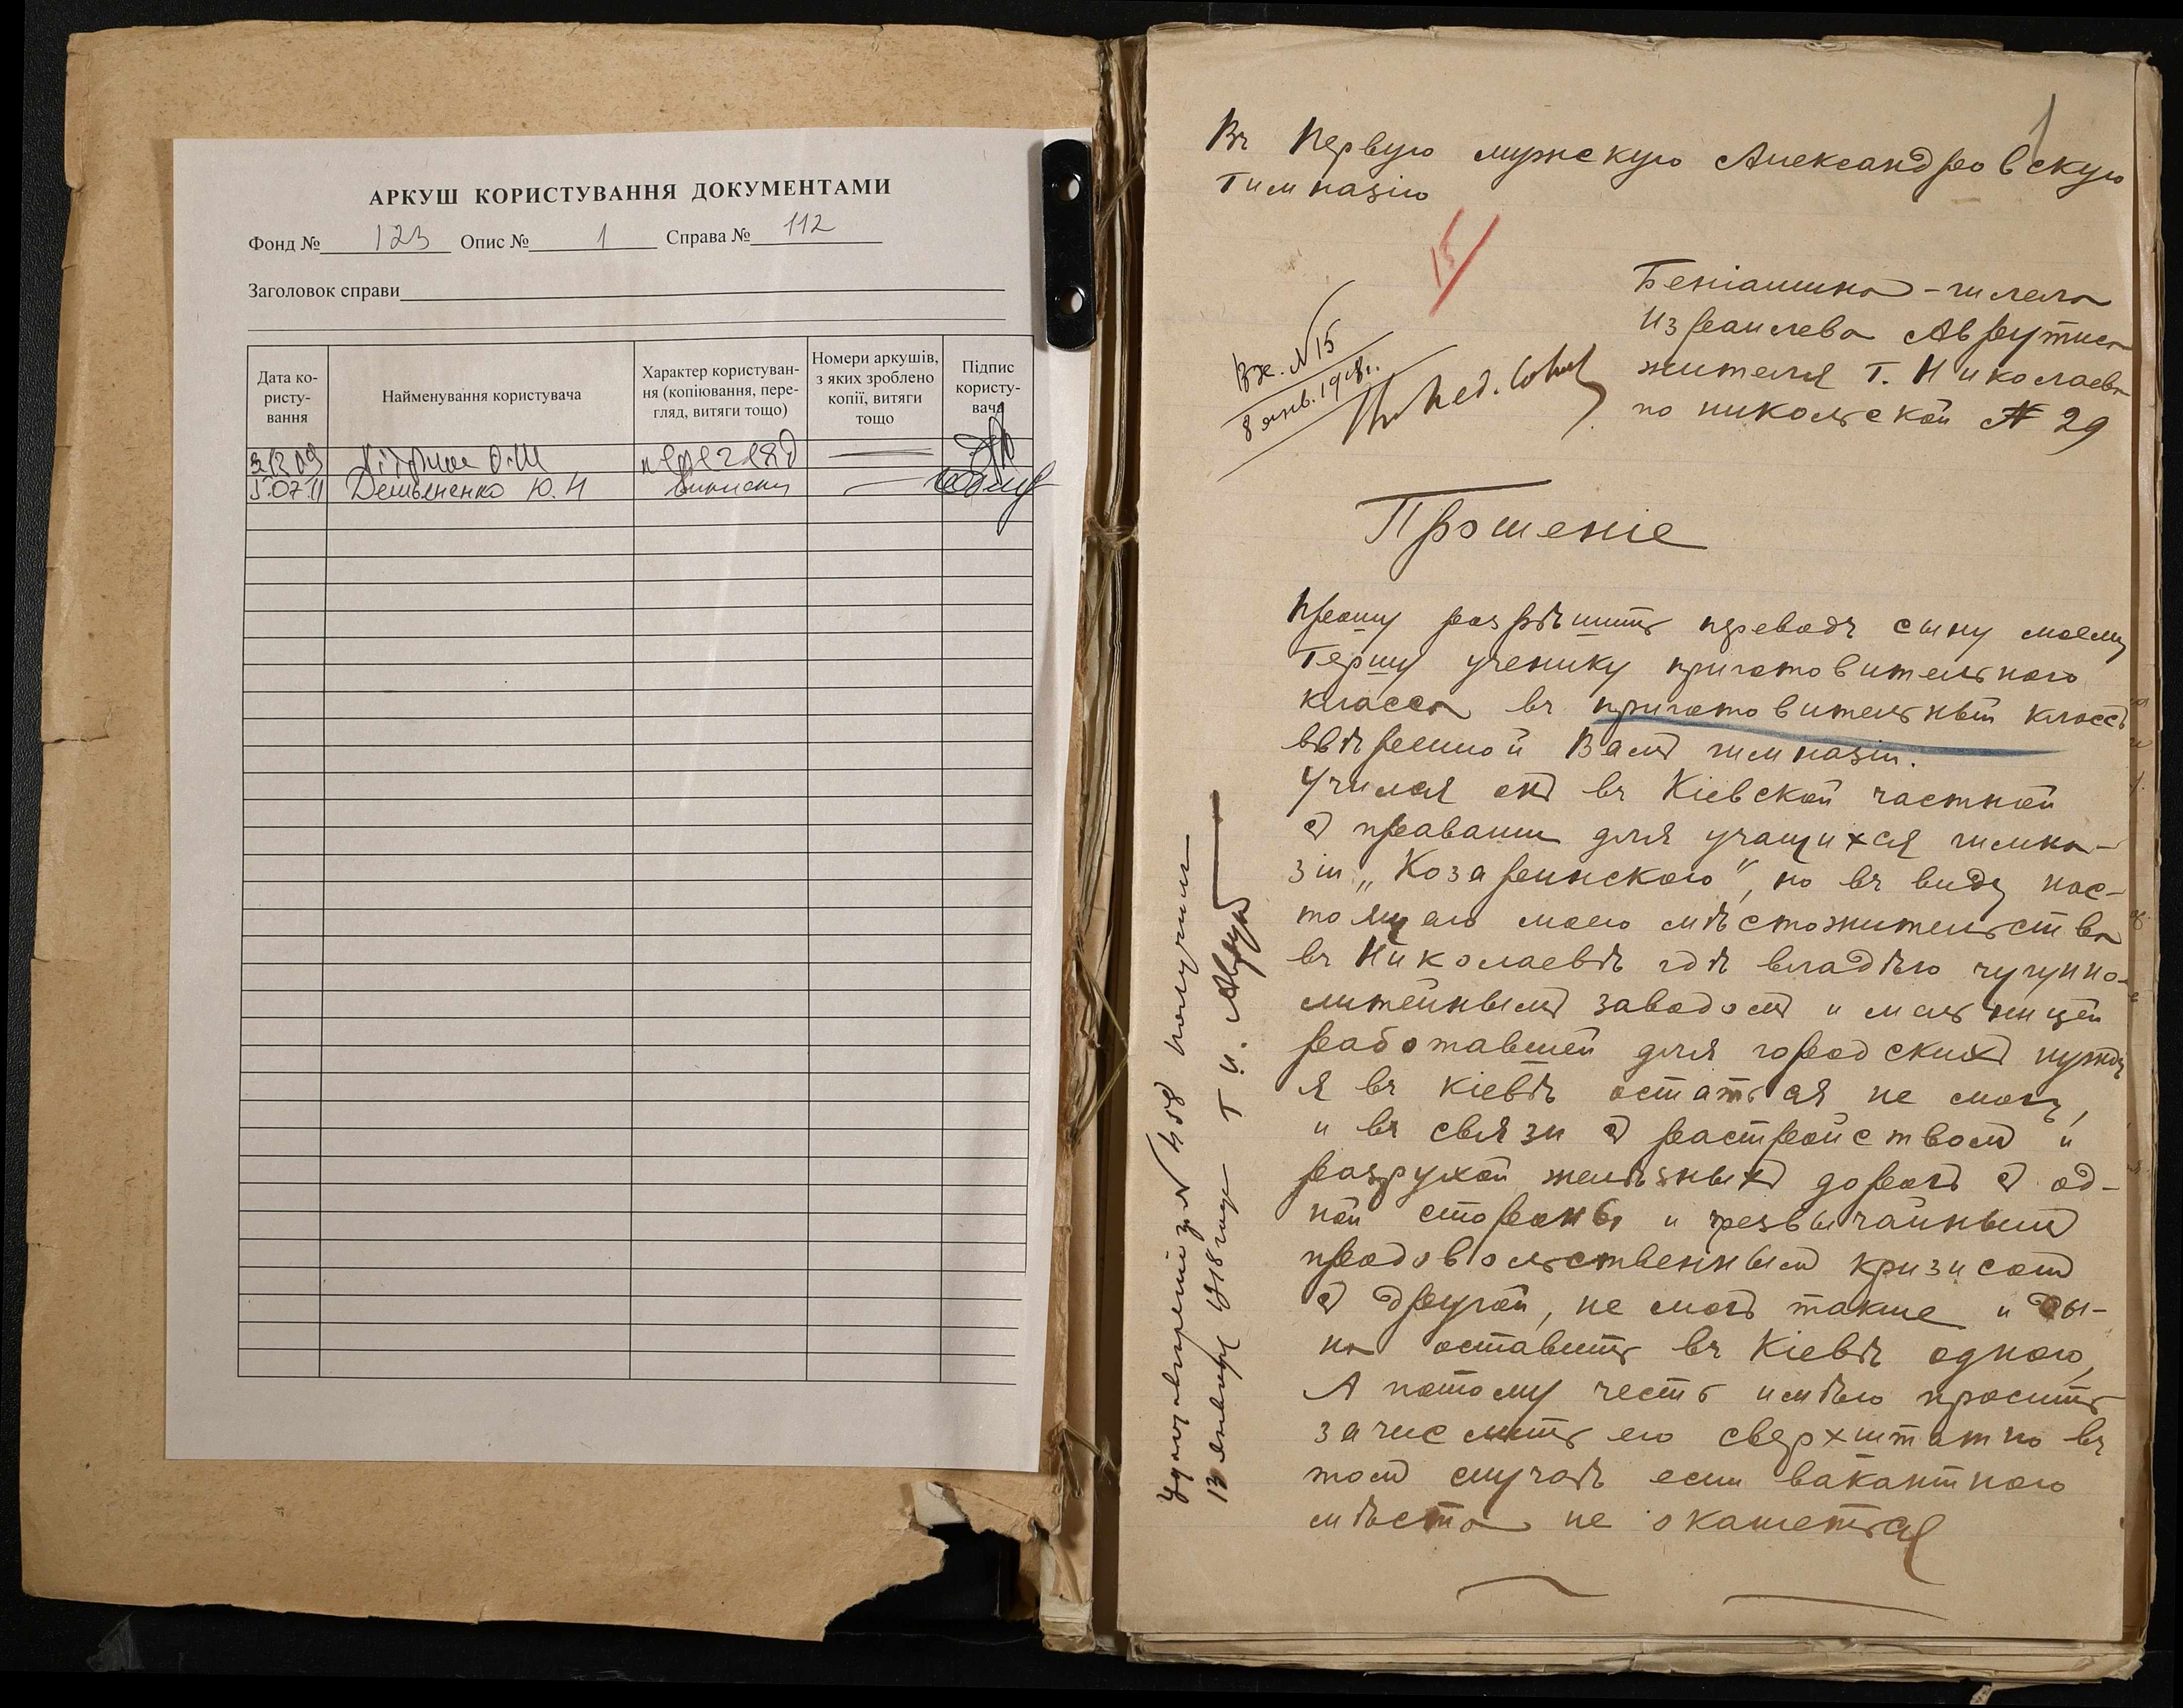 АРКУШ КОРИСТУВАННЯ ДОКУМЕНТАМИ
Фонд № 123 Опис № 1 Справа № 112
Заголовок справи
Дата ко-
ристу-
вання
Найменування користувача
Характер користуван-
ня (копіювання, пере-
гляд, витяги тощо)
Номери аркушів,
з яких зроблено
копії, витяги
тощо
Підпис
користу-
вача
перегляд
5.07.11 Демьяненко Ю. Н виписки
1
Въ Первую мужскую Александровскую
Гимназію
15
Беніамина-
Израилева Аврутина
жителя г. Николаева
по никольской № 29
Вх. № 15
8 янв. 1918 г.
Пед. Совѣт
Прошеніе
Прошу разрѣшить переводъ сыну моему
Гершу ученику приготовительного
класса въ приготовительный классъ
ввѣренной Вамъ гимназіи.
Учился онъ въ Кіевской частной
съ правами для учащихся гимна-
зіи „Козаринского", но въ виду нас-
тоящаго моего мѣстожительства
въ Николаевѣ гдѣ владѣю чугунно-
литейнымъ заводомъ и мельницей
работавшей для городскихъ нуждъ
я въ Кіевѣ остаться не могъ,
и въ связи съ растройствомъ и
разрухой желѣзныхъ дорогъ съ од-
ной стороны и чрезвычайнымъ
продовольственнымъ кризисомъ
съ другой, не могъ также и сы-
на оставить въ Кіевѣ одного,
А потому честь имѣю просить
зачислить его сверхштатно въ
томъ случаѣ если вакантного
мѣста не окажется
Удостовѣреніе за № 458 получилъ
13 января 1918 года Г. И. Аврут